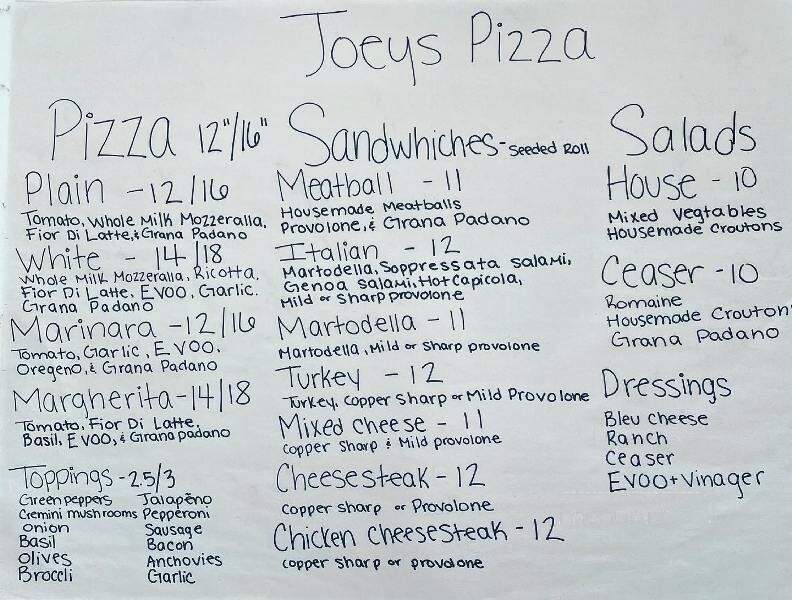 Joeys Pizza
Pizza 12"/16"
Plain - 12/16
Tomato, Whole Milk Mozzeralla,
Fior Di Latte, & Grana Padano
White - 14/18
Whole Milk Mozzeralla, Ricotta,
Fior Di Latte, EVOO, Garlic.
Grana Padano
Marinara - 12/16
Tomato, Garlic, EVOO,
Oregeno, & Grana Padano
Margherita - 14/18
Tomato, Fior Di Latte,
Basil, EVOO, & Grana padano
Toppings - 2.5/3
Green peppers Jalapéno
Cremini mushrooms Pepperoni
onion Sausage
Basil Bacon
Olives Anchovies
Broccli Garlic
Sandwhiches - Seeded Roll
Meatball - 11
Housemade Meatballs
Provolone, & Grana Padano
Italian - 12
Martodella, Soppressata salami,
Genoa salami, Hot Capicola,
Mild or Sharp provolone
Martodella - 11
Martodella, Mild or Sharp provolone
Turkey - 12
Turkey, Copper Sharp or Mild Provolone
Mixed cheese - 11
Copper Sharp & Mild provolone
Cheesesteak - 12
Copper sharp or Provolone
Chicken Cheesesteak - 12
Copper Sharp or provolone
Salads
House - 10
Mixed Vegtables
Housemade Croutons
Ceaser - 10
Romaine
Housemade Crouton
Grana Padano
Dressings
Bleu cheese
Ranch
Ceaser
EVOO + Vinager